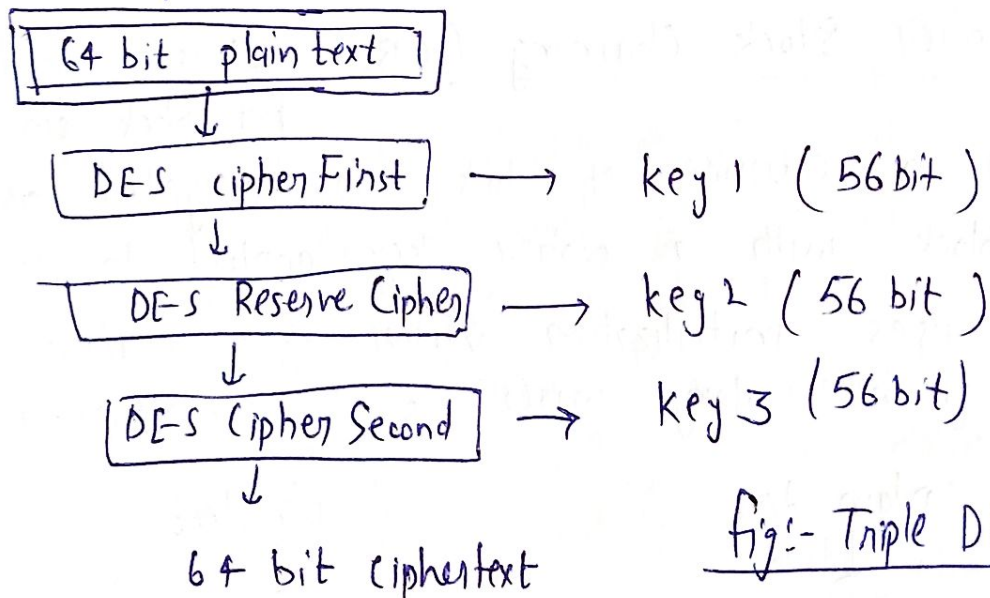 64 bit plain text
DES cipher First → key 1 (56 bit)
DES Reserve Cipher → key 2 (56 bit)
DES Cipher Second → key 3 (56 bit)
64 bit ciphertext
fig:- Triple D